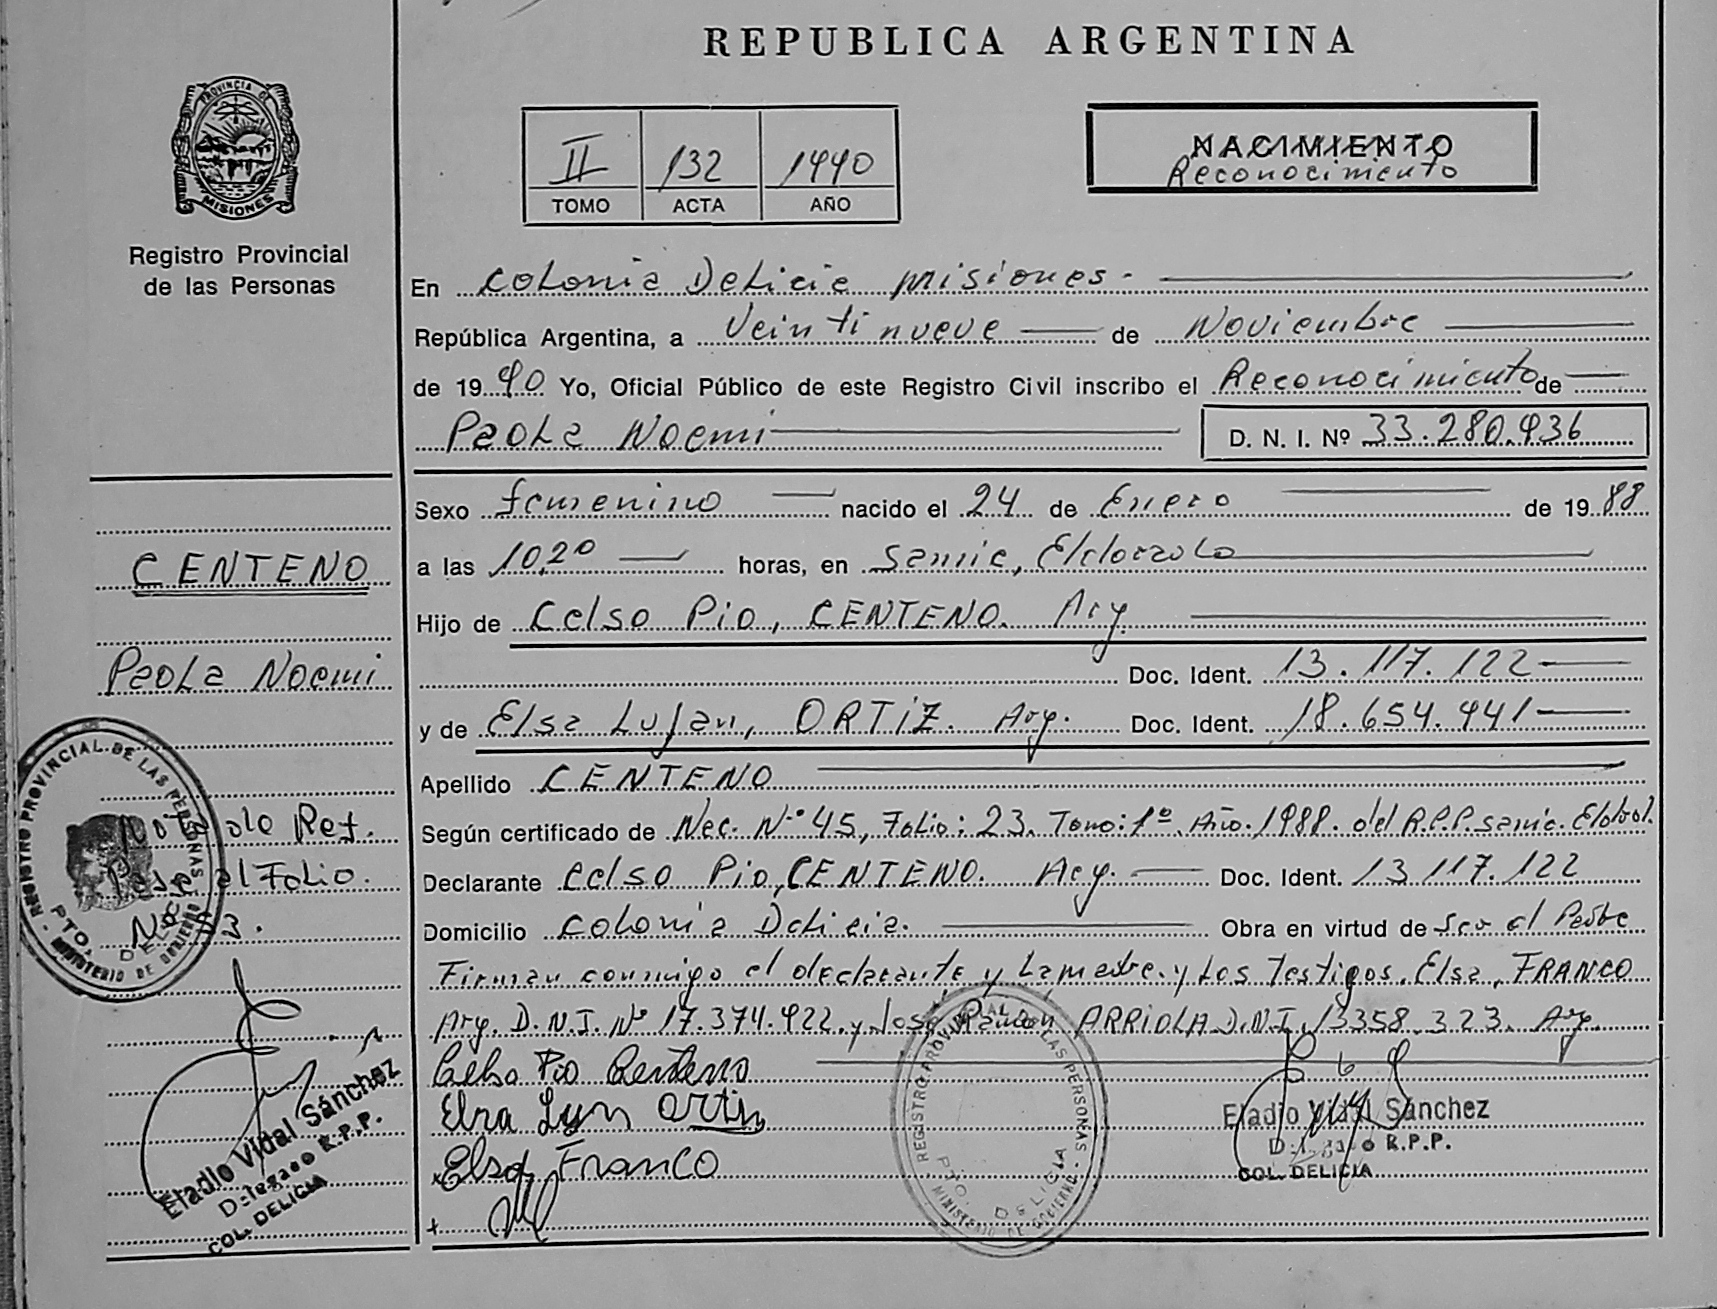 REPUBLICA ARGENTINA
PROVINCIA DE MISIONES
Registro Provincial
de las Personas
II 132 1990
TOMO ACTA AÑO
NACIMIENTO
Reconocimiento
En Colonia Delicia Misiones.-
República Argentina, a Veintinueve de Noviembre
de 1990 Yo, Oficial Público de este Registro Civil inscribo el Reconocimiento de
Paola Noemi D. N. I. Nº 33.280.936
Sexo femenino nacido el 24 de Enero de 1988
a las 10,20 horas, en Eldorado
Hijo de Celso Pio, CENTENO. Arg.
Doc. Ident. 13.117.122
y de Elsa Lujan, ORTIZ. Arg. Doc. Ident. 18.654.941
Apellido CENTENO
Según certificado de Nac. Nº 45, Folio: 23. Tomo: 1º. Año. 1988. del R.P.P.
Declarante Celso Pio, CENTENO. Arg. Doc. Ident. 13.117.122
Domicilio Colonia Delicia. Obra en virtud de ser el Padre
Firman conmigo el declarante y la madre. y los testigos. Elsa, FRANCO
Arg. D.N.I. Nº 17.374.922 y Jose Ramon ARRIOLA D.N.I. 13358.323. Arg.
Celso Pio Centeno
Elsa Lujan Ortiz
Elsa Franco
REGISTRO PROVINCIAL DE LAS PERSONAS
PTO. DELICIA
MINISTERIO DE GOBIERNO
Eladio Vidal Sánchez
Delegado R.P.P.
COL. DELICIA
CENTENO
Paola Noemi
al Folio.
REGISTRO PROVINCIAL DE LAS PERSONAS
PTO. DELICIA
MINISTERIO DE GOBIERNO
Eladio Vidal Sánchez
Delegado R.P.P.
COL. DELICIA